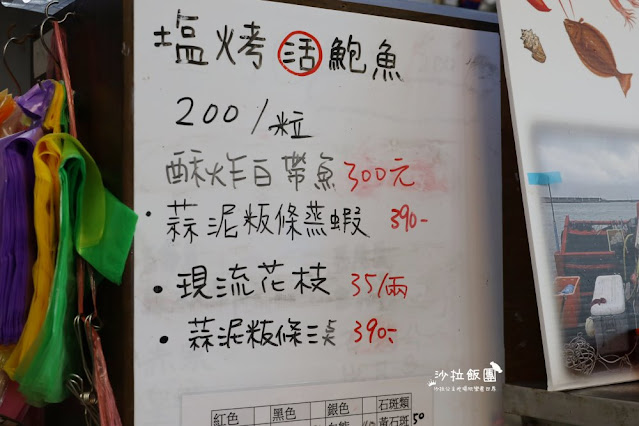 塩烤活鮑魚
200/粒
酥炸白帶魚300元
蒜泥粄條蒸蝦390-
• 現流花枝 35/兩
• 蒜泥粄條 390-
紅色 黑色 銀色 石斑類
黃石斑 50
沙拉飯團